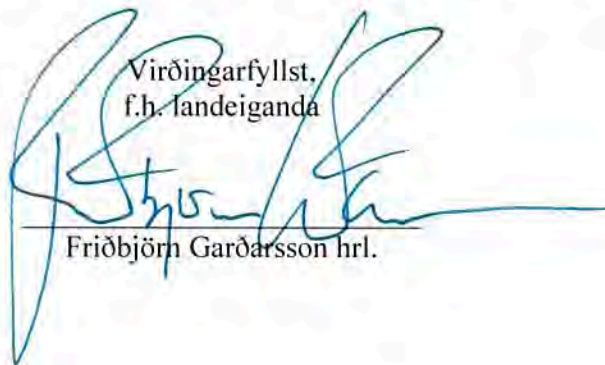 Virðingarfyllst,
f.h. landeiganda
Friðbjörn Garðarsson hrl.